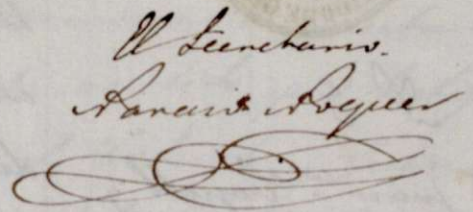 El Secretario.
Narciso Noguer